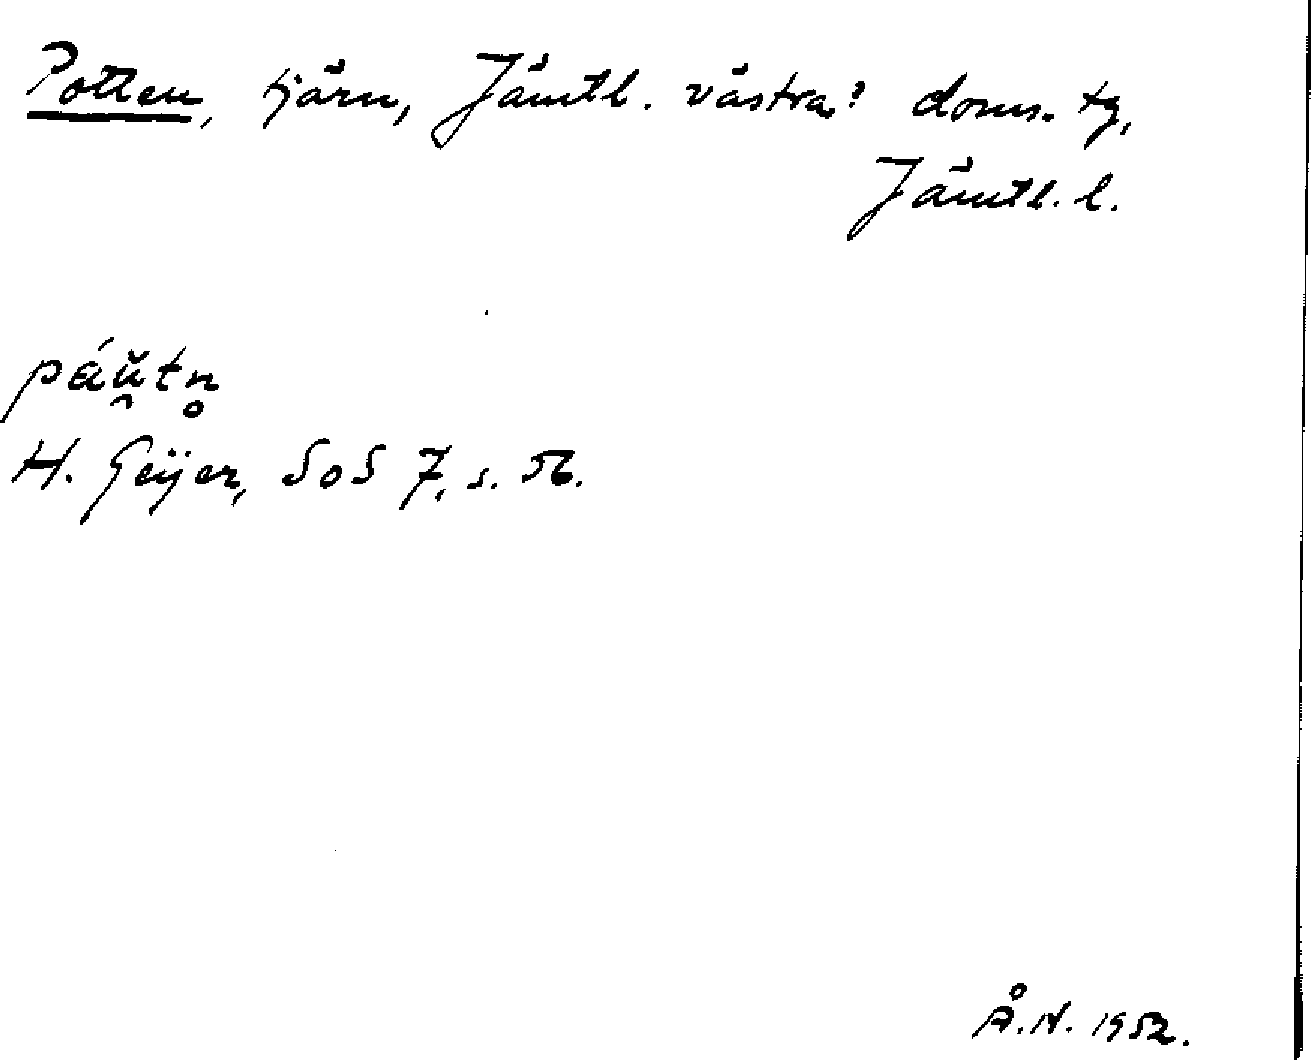 Potten, tjärn, Jämtl. västra? doms. tg,
Jämtl. l.
páŭ̯tn̥
H. Geijer, SoS 7, s. 56.
Å.N. 1952.